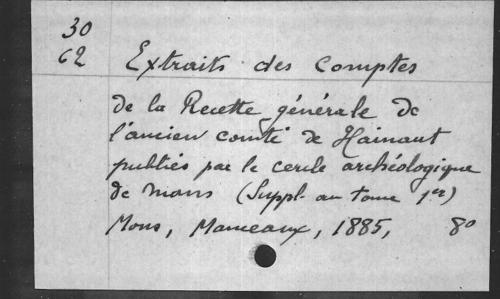 30
62 Extraits des Comptes
de la Recette générale de
l'ancien comté de Hainaut
publiés par le cercle archéologique
de Mons (Suppl. au tome 1er)
Mons, Manceaux, 1885, 8o